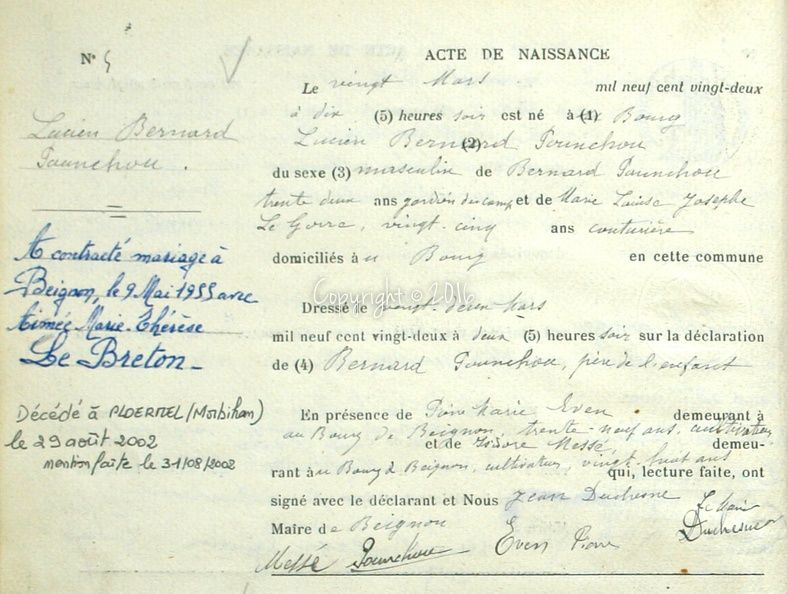 N° 5
ACTE DE NAISSANCE
Lucien Bernard
Pounchou.
A contracté mariage à
Beignon, le 9 Mai 1955 avec
Aimée Marie Thérèse
Le Breton_
Décédé à PLOERMEL (Morbihan)
le 29 août 2002
mention faite le 31/08/2002
Le vingt Mars mil neuf cent vingt-deux
à dix (5) heures soir est né à (1) Bourg
Lucien Bernard (2) Pounchou
du sexe (3) masculin de Bernard Pounchou
trente deux ans gardien du camp et de Marie Louise Josephe
Le Gorre, vingt-cinq ans couturière
domiciliés à u Bourg en cette commune
Copyright © 2016
Dressé le vingt-deux Mars
mil neuf cent vingt-deux à deux (5) heures soir sur la déclaration
de (4) Bernard Pounchou, père de l'enfant
En présence de Marie Even demeurant à
au Bourg de Beignon, trente-neuf ans, cultivateur
et de Isidore Messé, demeu-
rant à u Bourg de Beignon, cultivateur, vingt-huit ans qui, lecture faite, ont
signé avec le déclarant et Nous Jean Duchesne
Maire de Beignon
Le Maire
Duchesne
Messé Pounchou Even Pierre